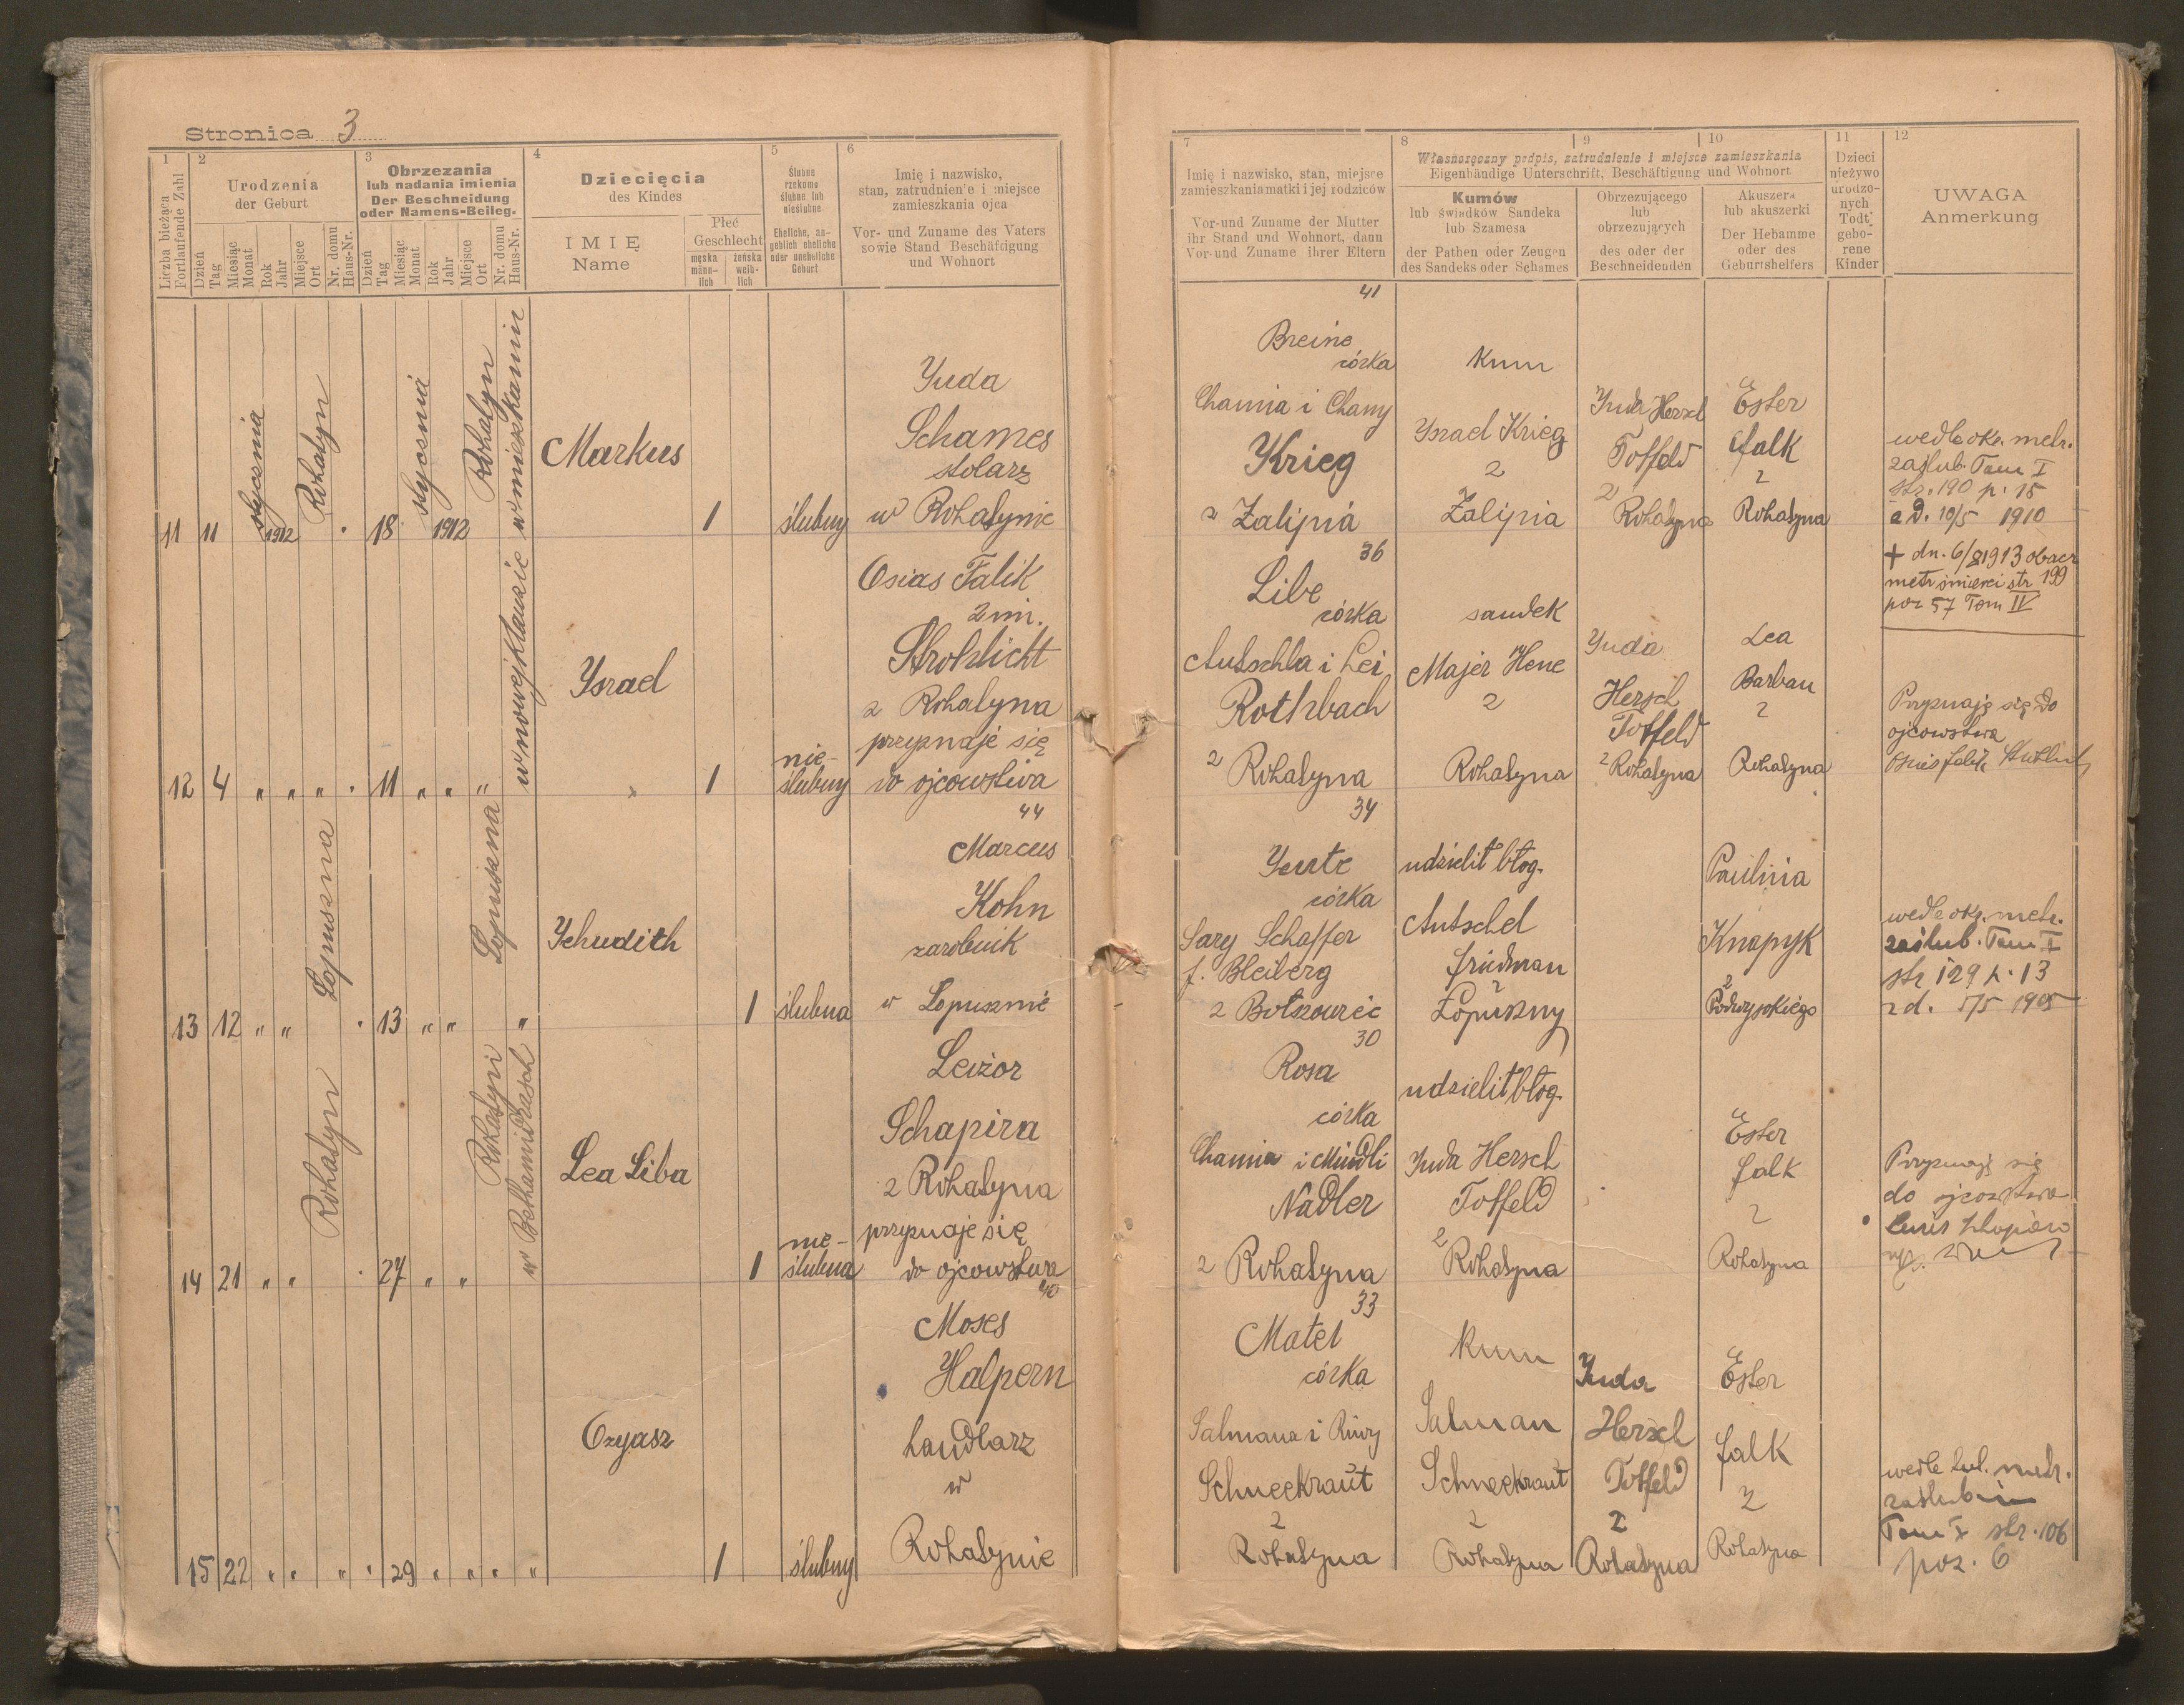 Stronica 3
1
Liczba bieżąca
Fortlaufende Zahl
2
Urodzenia
der Geburt
Dzień
Tag
Miesiąc
Monat
Rok
Jahr
Miejsce
Ort
Nr. domu
Haus-Nr.
3
Obrzezania
lub nadania imienia
Der Beschneidung
oder Namens-Beileg.
Dzień
Tag
Miesiąc
Monat
Rok
Jahr
Miejsce
Ort
Nr. domu
Haus-Nr.
4
Dziecięcia
des Kindes
IMIĘ
Name
Płeć
Geschlecht
męska
männ-
lich
żeńska
weib-
lich
5
Ślubne
rzekomo
ślubne lub
nieślubne
Eheliche, an-
geblich eheliche
oder uneheliche
Geburt
6
Imię i nazwisko,
stan, zatrudnienie i miejsce
zamieszkania ojca
Vor- und Zuname des Vaters
sowie Stand Beschäftigung
und Wohnort
7
Imię i nazwisko, stan, miejsce
zamieszkania matki i jej rodziców
Vor-und Zuname der Mutter
ihr Stand und Wohnort, dann
Vor-und Zuname ihrer Eltern
8
9
10
Własnoręczny podpis, zatrudnienie i miejsce zamieszkania
Eigenhändige Unterschrift, Beschäftigung und Wohnort
Kumów
lub świadków Sandeka
lub Szamesa
der Pathen oder Zeugen
des Sandeks oder Schames
Obrzezującego
lub
obrzezujących
des oder der
Beschneidenden
Akuszera
lub akuszerki
Der Hebamme
oder des
Geburtshelfers
11
Dzieci
nieżywo
urodzo-
nych
Todt-
gebo-
rene
Kinder
12
UWAGA
Anmerkung
11
11
stycznia
1912
Rohatyn
18
stycznia
1912
Rohatyn
w mieszkaniu
Markus
1
ślubny
Yuda
Schames
stolarz
w Rohatynie
41
Breine
córka
Chaima i Chany
Krieg
z Zalipia
Kum
Ysrael Krieg
z
Zalipia
Yuda Hersch
Toffeld
z
Rohatyna
Ester
Falk
z
Rohatyna
wedle okr. metr.
zaślub. Tom I
str. 190 p. 15
z d. 10/5 1910
12
4
" " "
11
" " "
w nowej klauzie
Ysrael
1
nie-
ślubny
Osias Falik
2 im.
Strohlicht
z Rohatyna
przyznaje się
do ojcowstwa
36
Libe
córka
Antschla i Lei
Rothbach
z Rohatyna
sandek
Majer Hene
z
Rohatyna
Yuda
Hersch
Toffeld
z Rohatyna
Lea
Barban
z
Rohatyna
+ dn. 6/8 1913 obacz
metr śmierci str 199
poz 57 Tom IV
Przyznaję się do
ojcowstwa
13
12
" "
Łopuszna
13
" "
Łopuszna
"
Yehudith
1
ślubna
44
Marcus
Kohn
zarobnik
w Łopusznie
34
Yente
córka
Sary Schaffer
f. Bleiberg
z Bołszowiec
udzielił błog.
Antschel
Friedman
z
Łopuszny
Paulina
Knapyk
z
Podwysokiego
wedle okr. metr.
zaślub. Tom I
str 129 p. 13
z d. 5/5 1905
14
21
" "
Rohatyn
27
" "
Rohatyn
w Bethamidrasch
Lea Liba
1
nie-
ślubna
Leizor
Schapira
z Rohatyna
przyznaje się
do ojcowstwa
30
Rosa
córka
Chaima i Mindli
Nadler
z Rohatyna
udzielił błog.
Yuda Hersch
Toffeld
z
Rohatyna
Ester
Falk
z
Rohatyna
Przyznaję się
do ojcowstwa
15
22
" " "
29
" " " "
Ozyasz
1
ślubny
40
Moses
Halpern
handlarz
w
Rohatynie
33
Matel
córka
Salmana i Riwy
Schneekraut
z
Rohatyna
Kum
Salman
Schneekraut
z
Rohatyna
Yuda
Hersch
Toffeld
z
Rohatyna
Ester
Falk
z
Rohatyna
wedle tut. metr.
zaślubin
Tom I str. 106
poz. 6